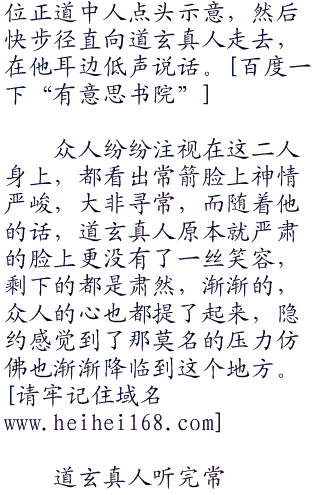 位正道中人点头示意，然后
快步径直向道玄真人走去，
在他耳边低声说话。[百度一
下“有意思书院”]
众人纷纷注视在这二人
身上，都看出常箭脸上神情
严峻，大非寻常，而随着他
的话，道玄真人原本就严肃
的脸上更没有了一丝笑容，
剩下的都是肃然，渐渐的，
众人的心也都提了起来，隐
约感觉到了那莫名的压力仿
佛也渐渐降临到这个地方。
[请牢记住域名
www.heihei168.com]
道玄真人听完常